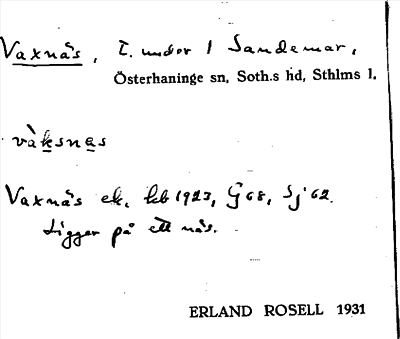 Vaxnäs, t. under 1 Sandemar,
Österhaninge sn, Soth.s hd, Sthlms l.
vàksnas
Vaxnäs ek. kb 1923, G 68, Sj 62.
Ligger på ett näs.
ERLAND ROSELL 1931